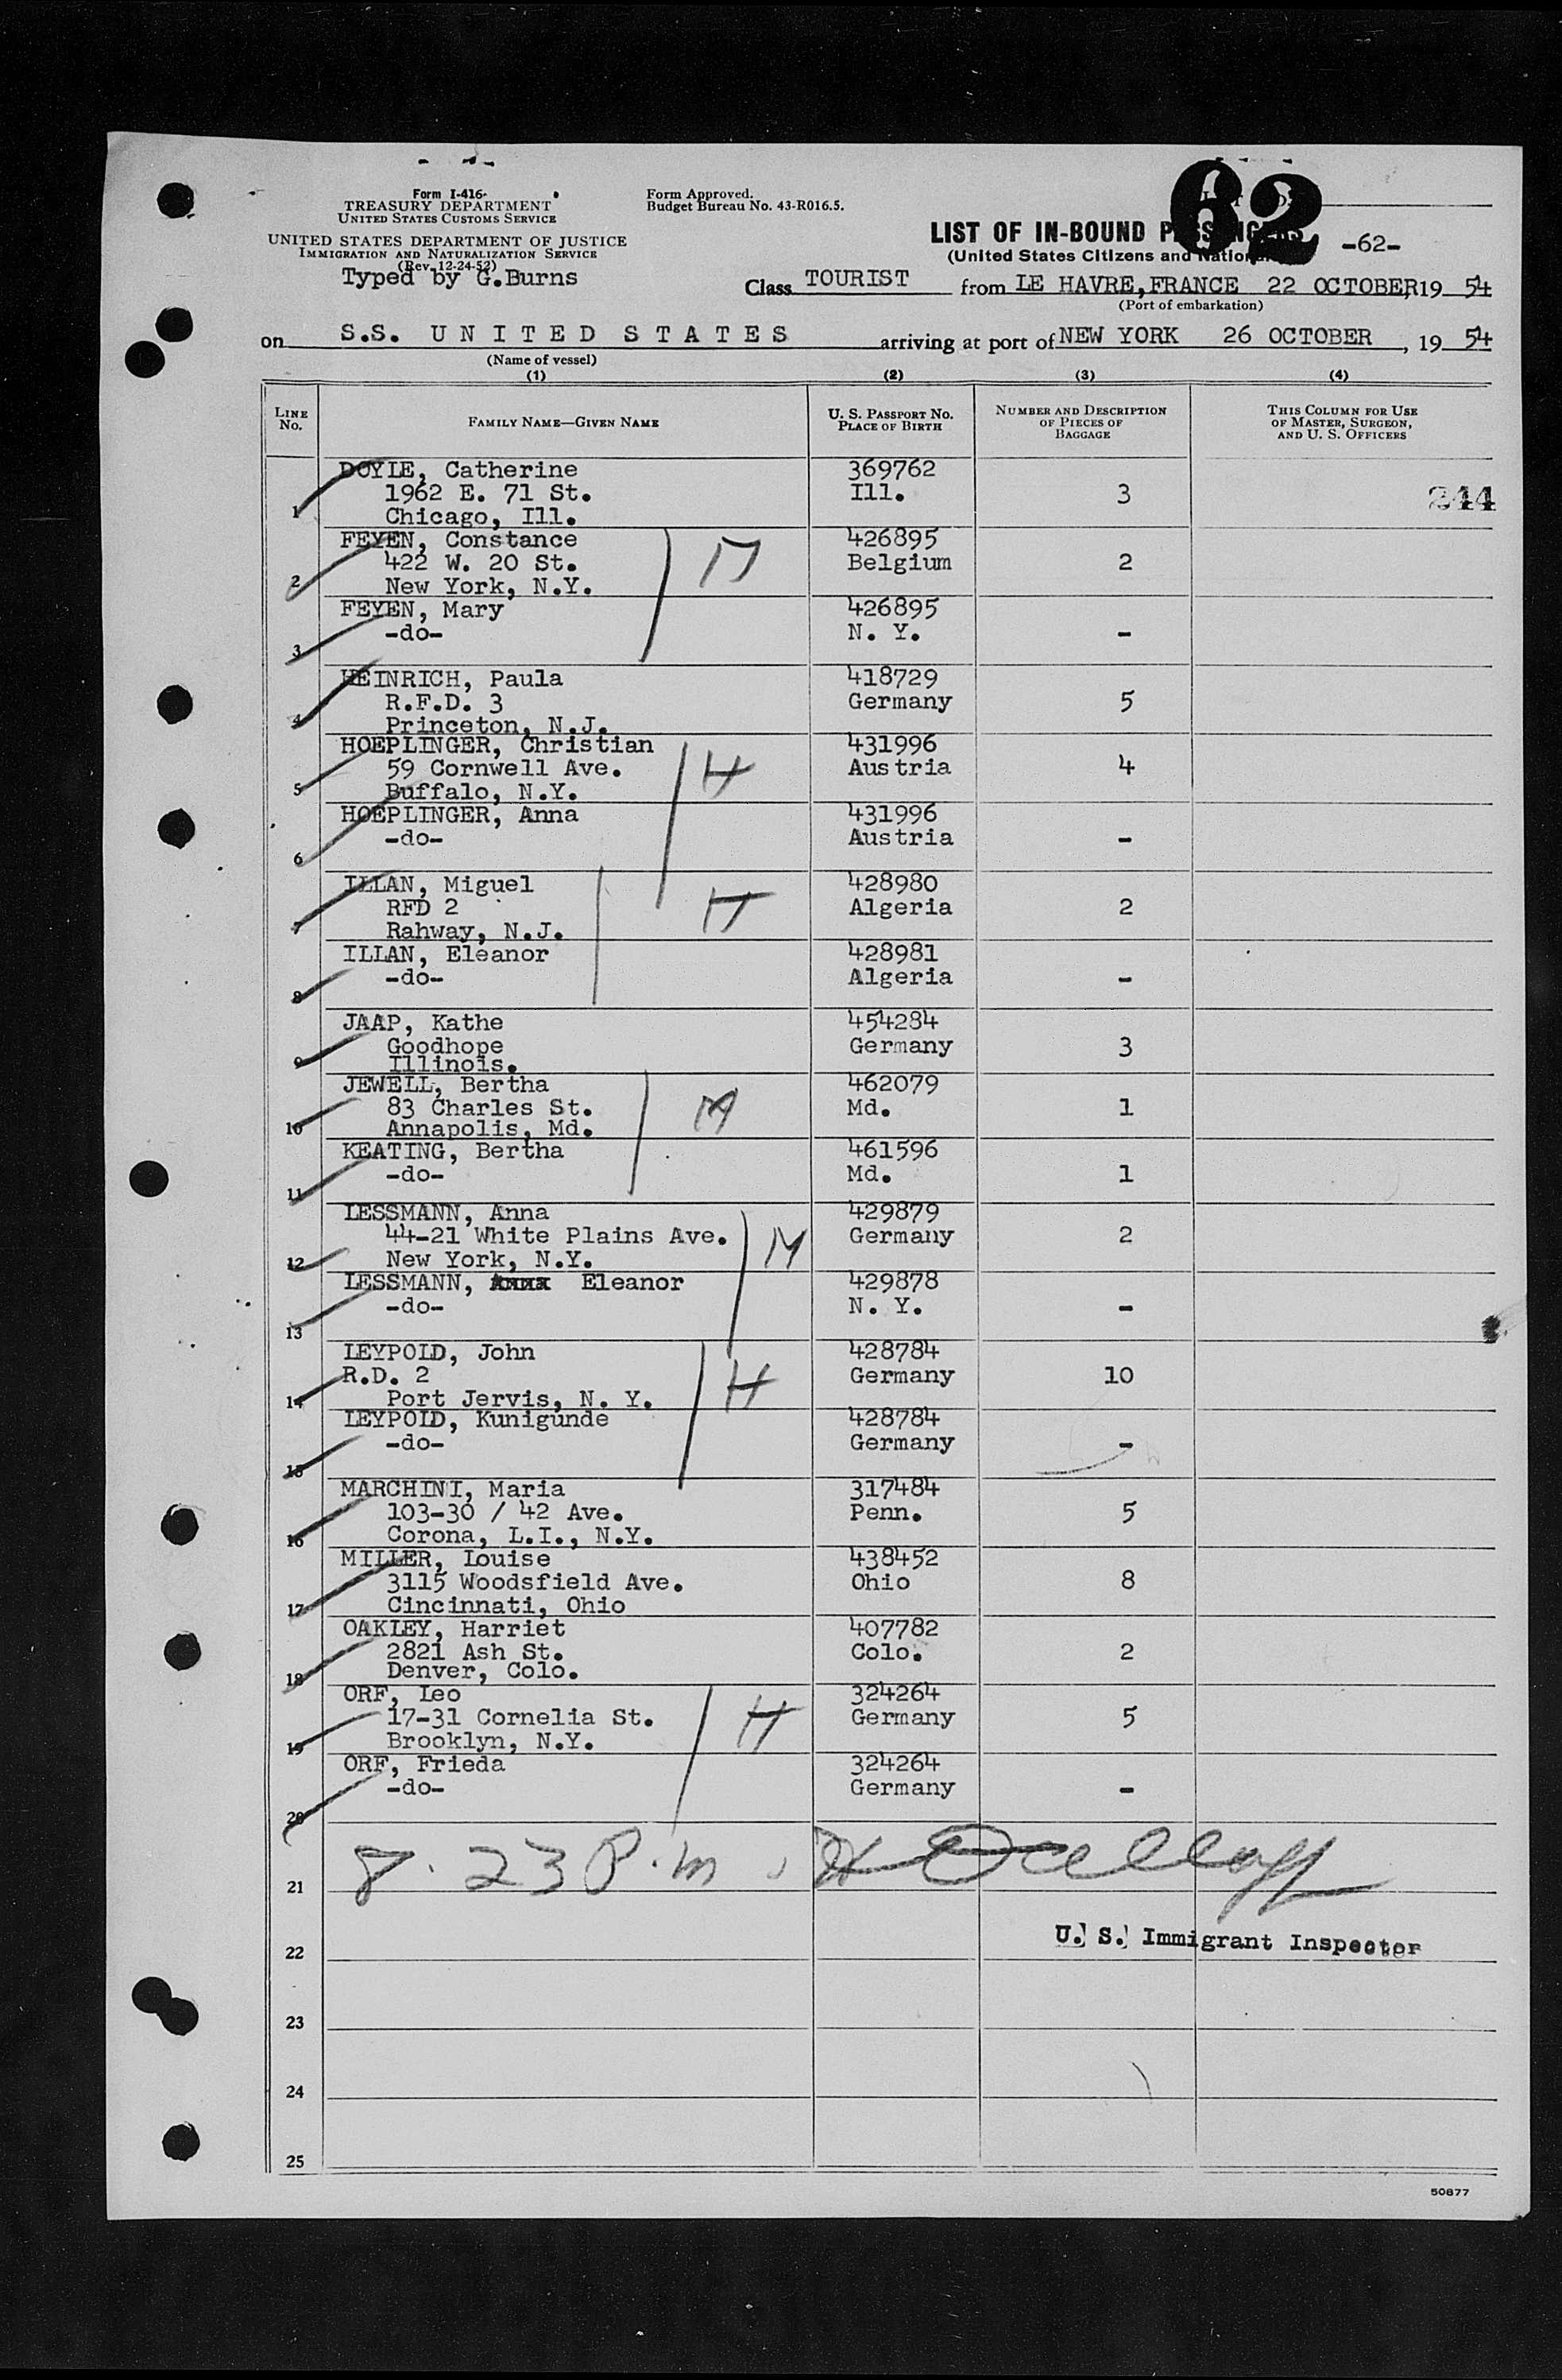 Form I-416
TREASURY DEPARTMENT
UNITED STATES CUSTOMS SERVICE
UNITED STATES DEPARTMENT OF JUSTICE
IMMIGRATION AND NATURALIZATION SERVICE
(Rev. 12-24-52)
Typed by G.Burns
Form Approved.
Budget Bureau No. 43-R016.5.
62
LIST OF IN-BOUND PASSENGERS
-62-
(United States Citizens and Nationals)
Class TOURIST from LE HAVRE, FRANCE 22 OCTOBER, 19 54
(Port of embarkation)
on S.S. UNITED STATES arriving at port of NEW YORK 26 OCTOBER, 19 54
(Name of vessel)
(1) (2) (3) (4)
LINE No. FAMILY NAME—GIVEN NAME U. S. PASSPORT No. PLACE OF BIRTH NUMBER AND DESCRIPTION OF PIECES OF BAGGAGE THIS COLUMN FOR USE OF MASTER, SURGEON, AND U. S. OFFICERS
DOYLE, Catherine 369762
1962 E. 71 St. Ill. 3 244
1 Chicago, Ill.
FEYEN, Constance 426895
422 W. 20 St. Belgium 2
2 New York, N.Y.
FEYEN, Mary 426895
-do- N. Y. -
3
HEINRICH, Paula 418729
R.F.D. 3 Germany 5
4 Princeton, N.J.
HOEPLINGER, Christian 431996
59 Cornwell Ave. H Austria 4
5 Buffalo, N.Y.
HOEPLINGER, Anna 431996
-do- Austria -
6
ILLAN, Miguel 428980
RFD 2 H Algeria 2
7 Rahway, N.J.
ILLAN, Eleanor 428981
-do- Algeria -
8
JAAP, Kathe 454284
Goodhope Germany 3
9 Illinois.
JEWELL, Bertha 462079
83 Charles St. M Md. 1
10 Annapolis, Md.
KEATING, Bertha 461596
-do- Md. 1
11
LESSMANN, Anna 429879
44-21 White Plains Ave. M Germany 2
12 New York, N.Y.
LESSMANN, Eleanor 429878
-do- N. Y. -
13
LEYPOLD, John 428784
R.D. 2 H Germany 10
14 Port Jervis, N. Y.
LEYPOLD, Kunigunde 428784
-do- Germany -
15
MARCHINI, Maria 317484
103-30 / 42 Ave. Penn. 5
16 Corona, L.I., N.Y.
MILLER, Louise 438452
3115 Woodsfield Ave. Ohio 8
17 Cincinnati, Ohio
OAKLEY, Harriet 407782
2821 Ash St. Colo. 2
18 Denver, Colo.
ORF, Leo 324264
17-31 Cornelia St. H Germany 5
19 Brooklyn, N.Y.
ORF, Frieda 324264
-do- Germany -
20
8.23 P.m.
21
U. S. Immigrant Inspector
22
23
24
25
50877